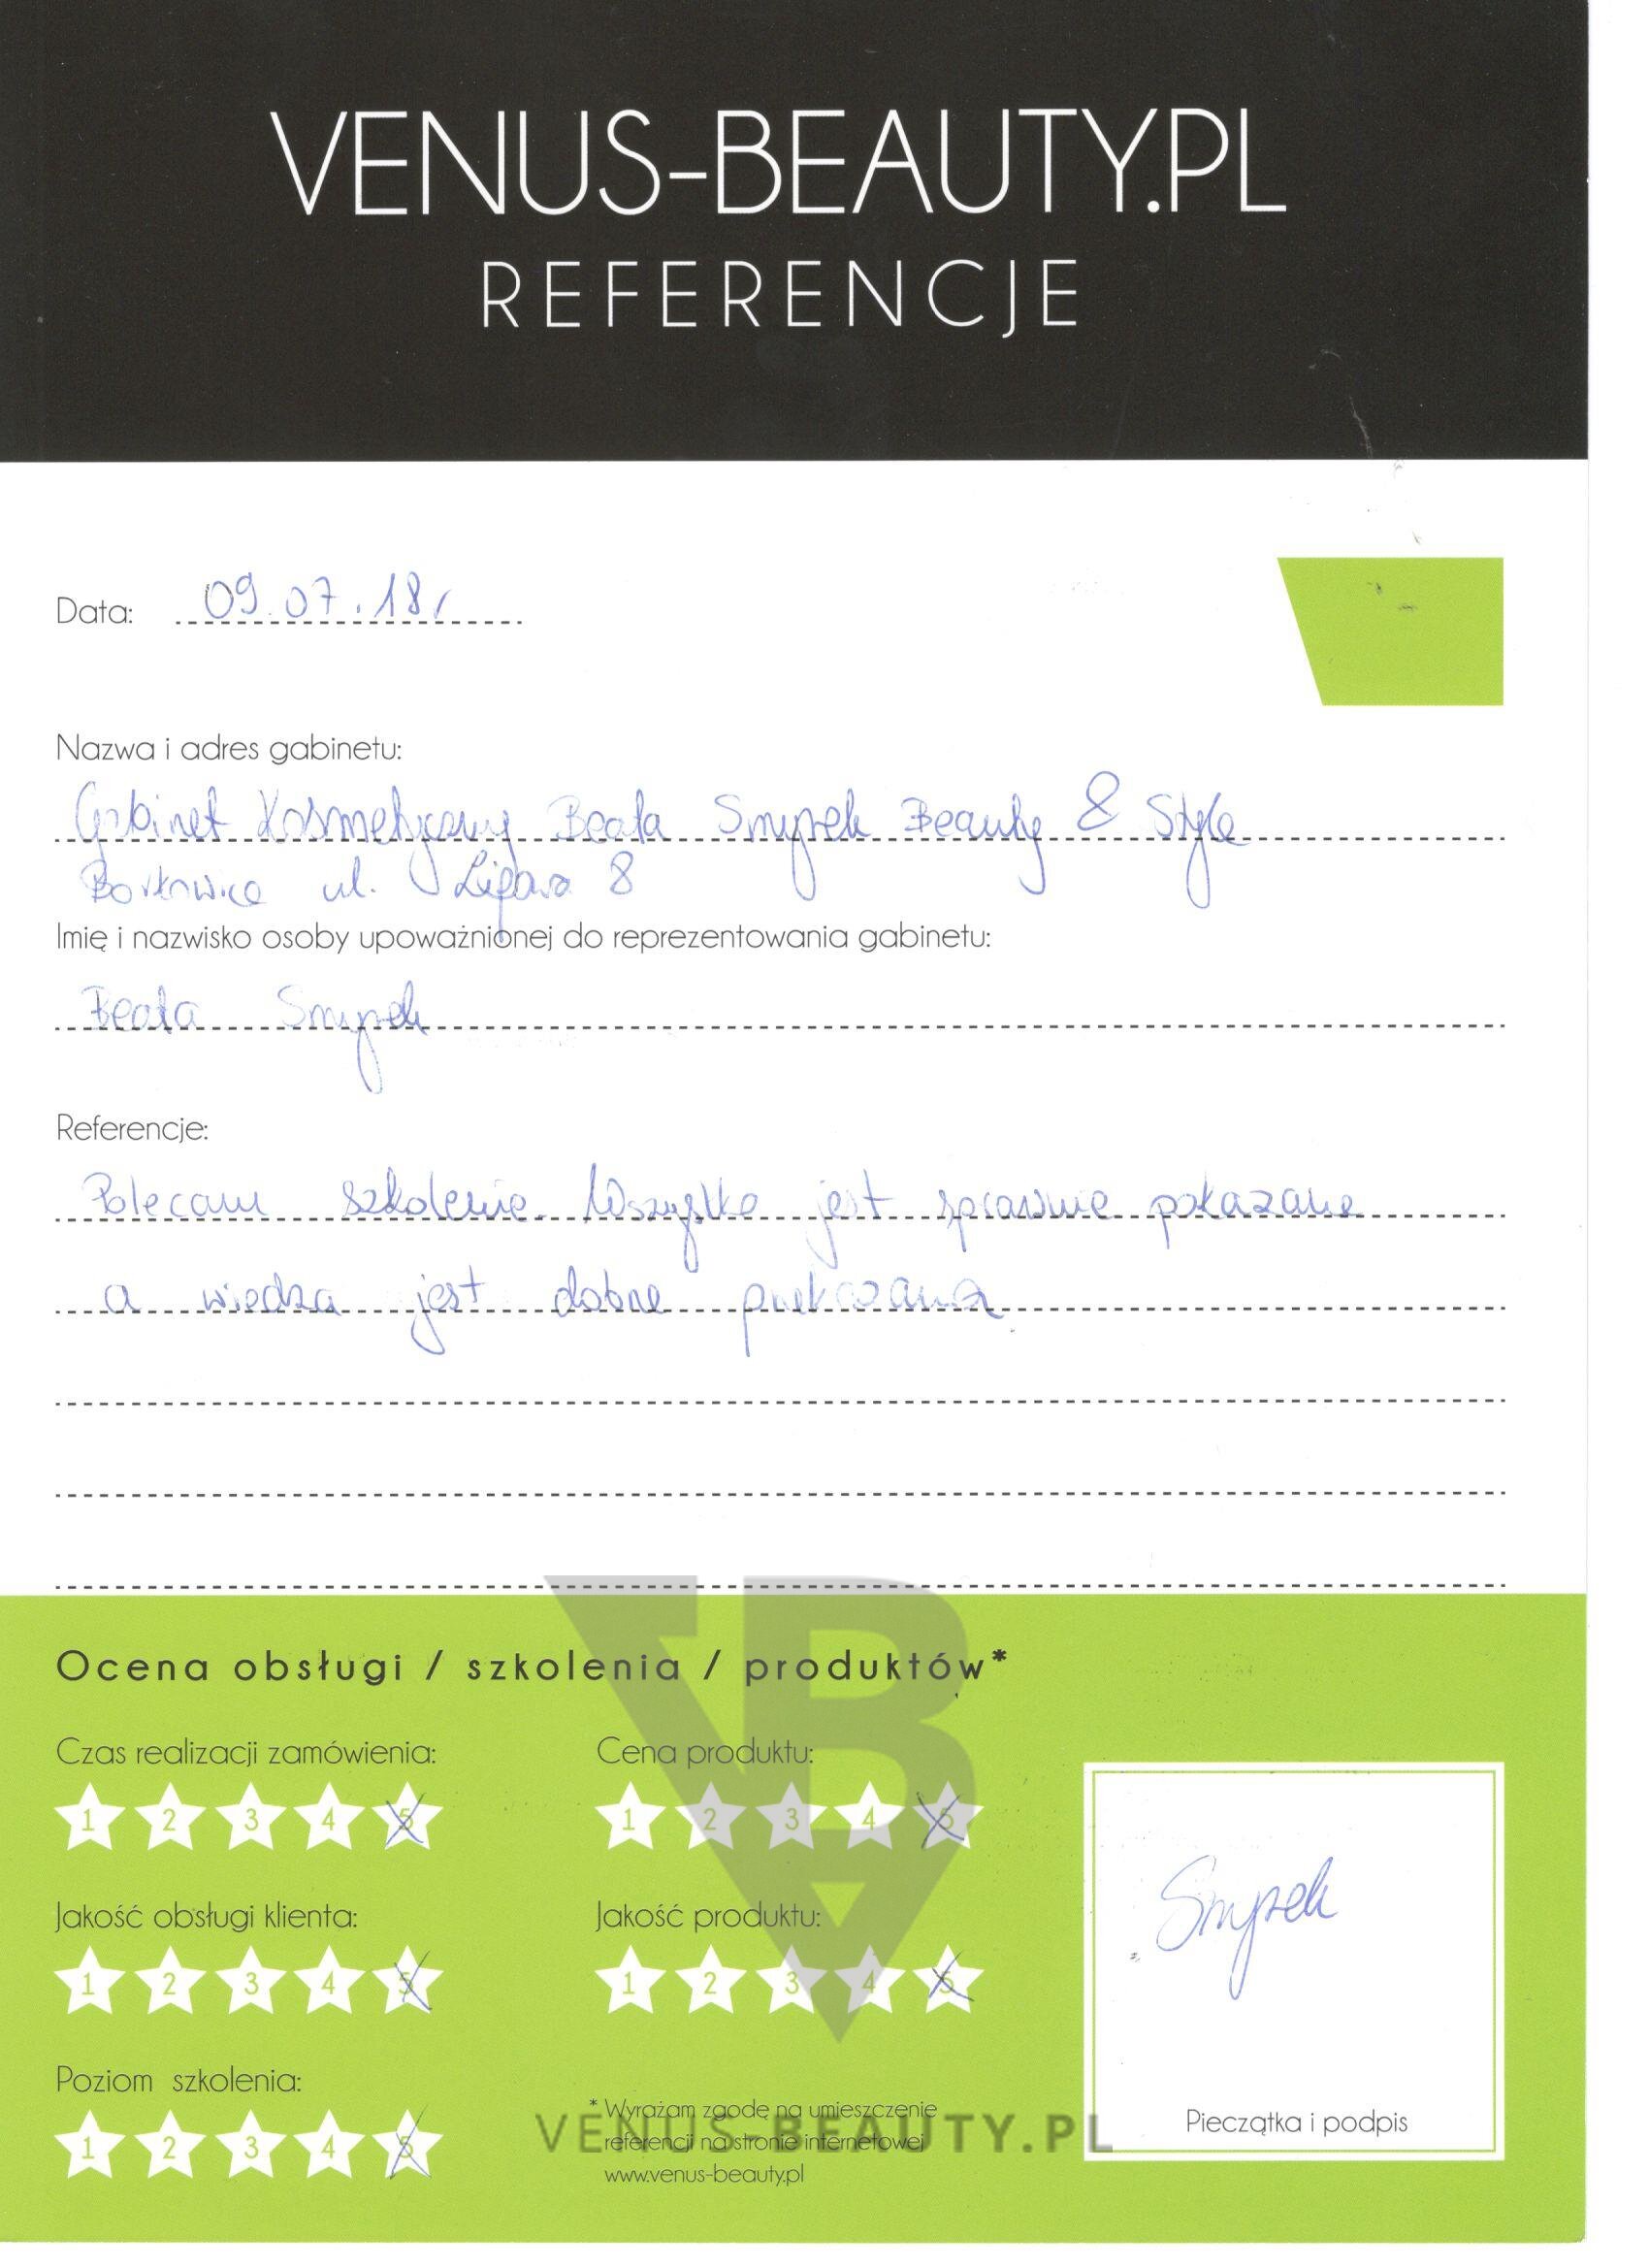 VENUS-BEAUTY.PL
REFERENCJE
Data: 09.07.18r
Nazwa i adres gabinetu:
Gabinet Kosmetyczny Beata Smyrek Beauty & Style
Borkowice ul. Lipowa 8
Imię i nazwisko osoby upoważnionej do reprezentowania gabinetu:
Beata Smyrek
Referencje:
Polecam szkolenie. Wszystko jest sprawnie pokazane
a wiedza jest dobrze przekazana.
Ocena obsługi / szkolenia / produktów*
Czas realizacji zamówienia: Cena produktu:
1 2 3 4 5 1 2 3 4 5
Jakość obsługi klienta: Jakość produktu:
1 2 3 4 5 1 2 3 4 5
Smyrek
Poziom szkolenia:
1 2 3 4 5
* Wyrażam zgodę na umieszczenie
referencji na stronie internetowej
www.venus-beauty.pl
Pieczątka i podpis
VENUS-BEAUTY.PL